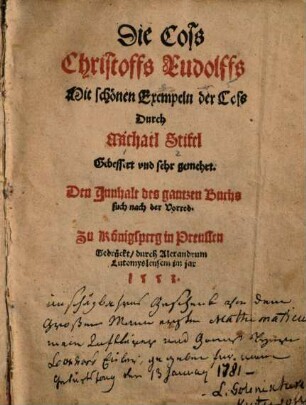 Die Coss
Christoffs Rudolffs
Mit schönen Exempeln der Coss
Durch
Michael Stifel
Gebessert vnd sehr gemehrt.
Den Junhalt des gantzen Buchs
such nach der Vorred.
Zu Königsperg in Preussen
Gedrückt / durch Alexandrum
Lutomyslensem im jar
1553.
Geschenk von dem
Großen Mann
mein
Leonhard Euler, gegeben für meine
Geburtstag den 13 January 1781 –